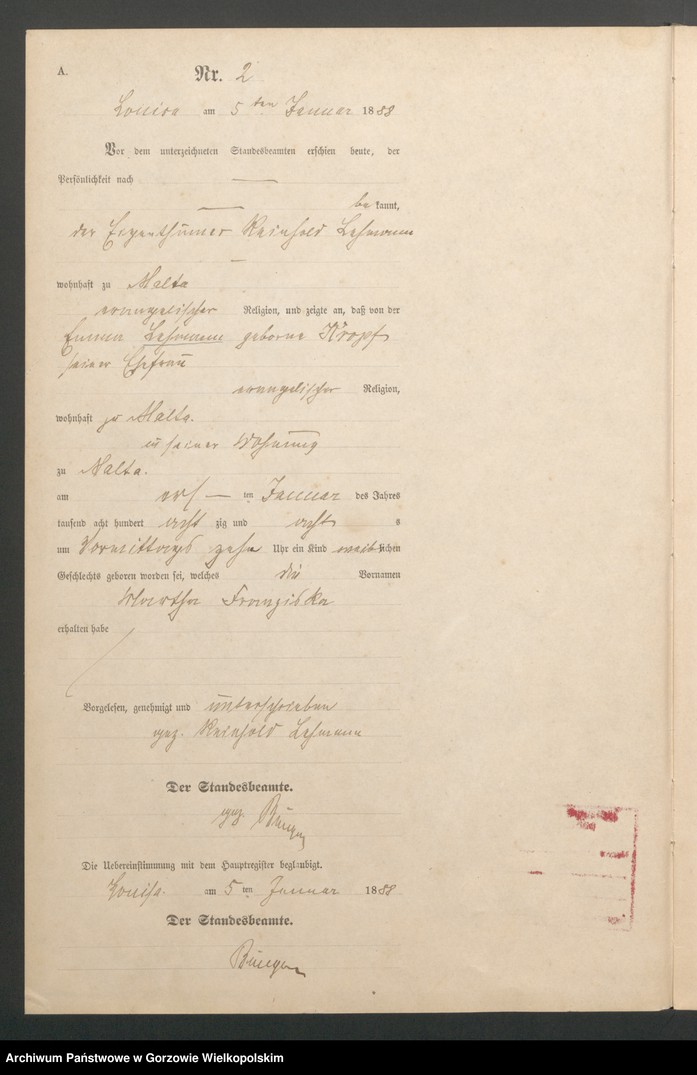 A.
Nr. 2
Louisa am 5ten Januar 1888
Vor dem unterzeichneten Standesbeamten erschien heute, der
Persönlichkeit nach —
— be kannt,
der Eigenthümer Reinhold Lehmann
—
wohnhaft zu Malta
evangelischer Religion, und zeigte an, daß von der
Emma Lehmann geborne Kropf
seiner Ehefrau
evangelischer Religion,
wohnhaft zu Malta.
in seiner Wohnung
zu Malta.
am — ten Januar des Jahres
tausend acht hundert acht zig und acht s
um Vormittags zehn Uhr ein Kind weiblichen
Geschlechts geboren worden sei, welches die Vornamen
Martha Franziska
erhalten habe
Vorgelesen, genehmigt und unterschrieben
gez. Reinhold Lehmann
Der Standesbeamte.
gez.
Die Uebereinstimmung mit dem Hauptregister beglaubigt.
Louisa. am 5ten Januar 1888
Der Standesbeamte.
Archiwum Państwowe w Gorzowie Wielkopolskim